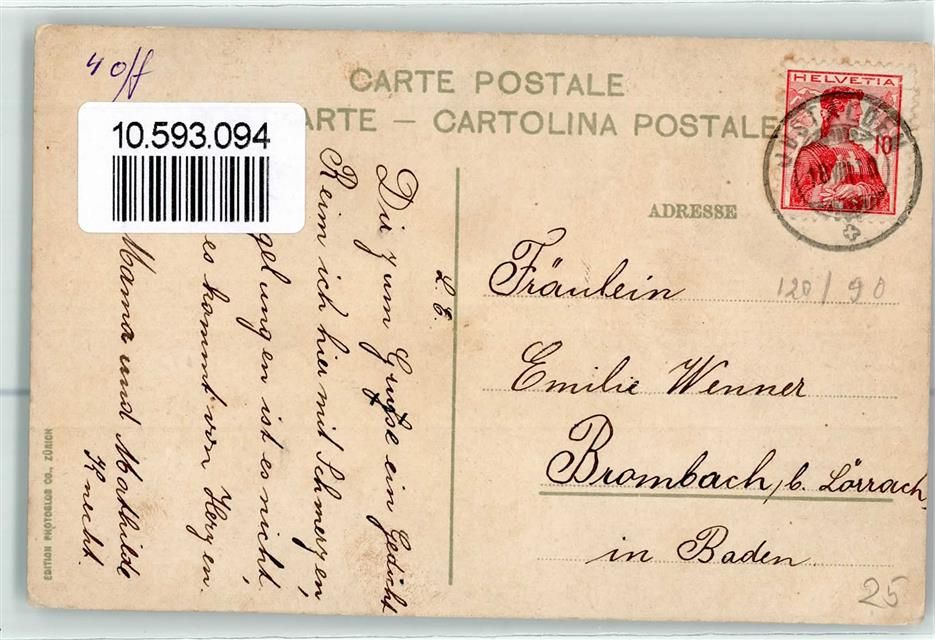 4 off
CARTE POSTALE
ARTE – CARTOLINA POSTALE
HELVETIA
10
10.593.094
ADRESSE
120/90
Fräulein
Emilie Wenner
Brombach, b. Lörrach,
in Baden
25
L. E.
Dir zum Gruße ein Gedicht
Reim ich hier mit Schmerzen,
gelungen ist es nicht,
es kommt von Herzen.
Mama und Mathilde
Knecht.
EDITION PHOTOGLOB CO., ZÜRICH